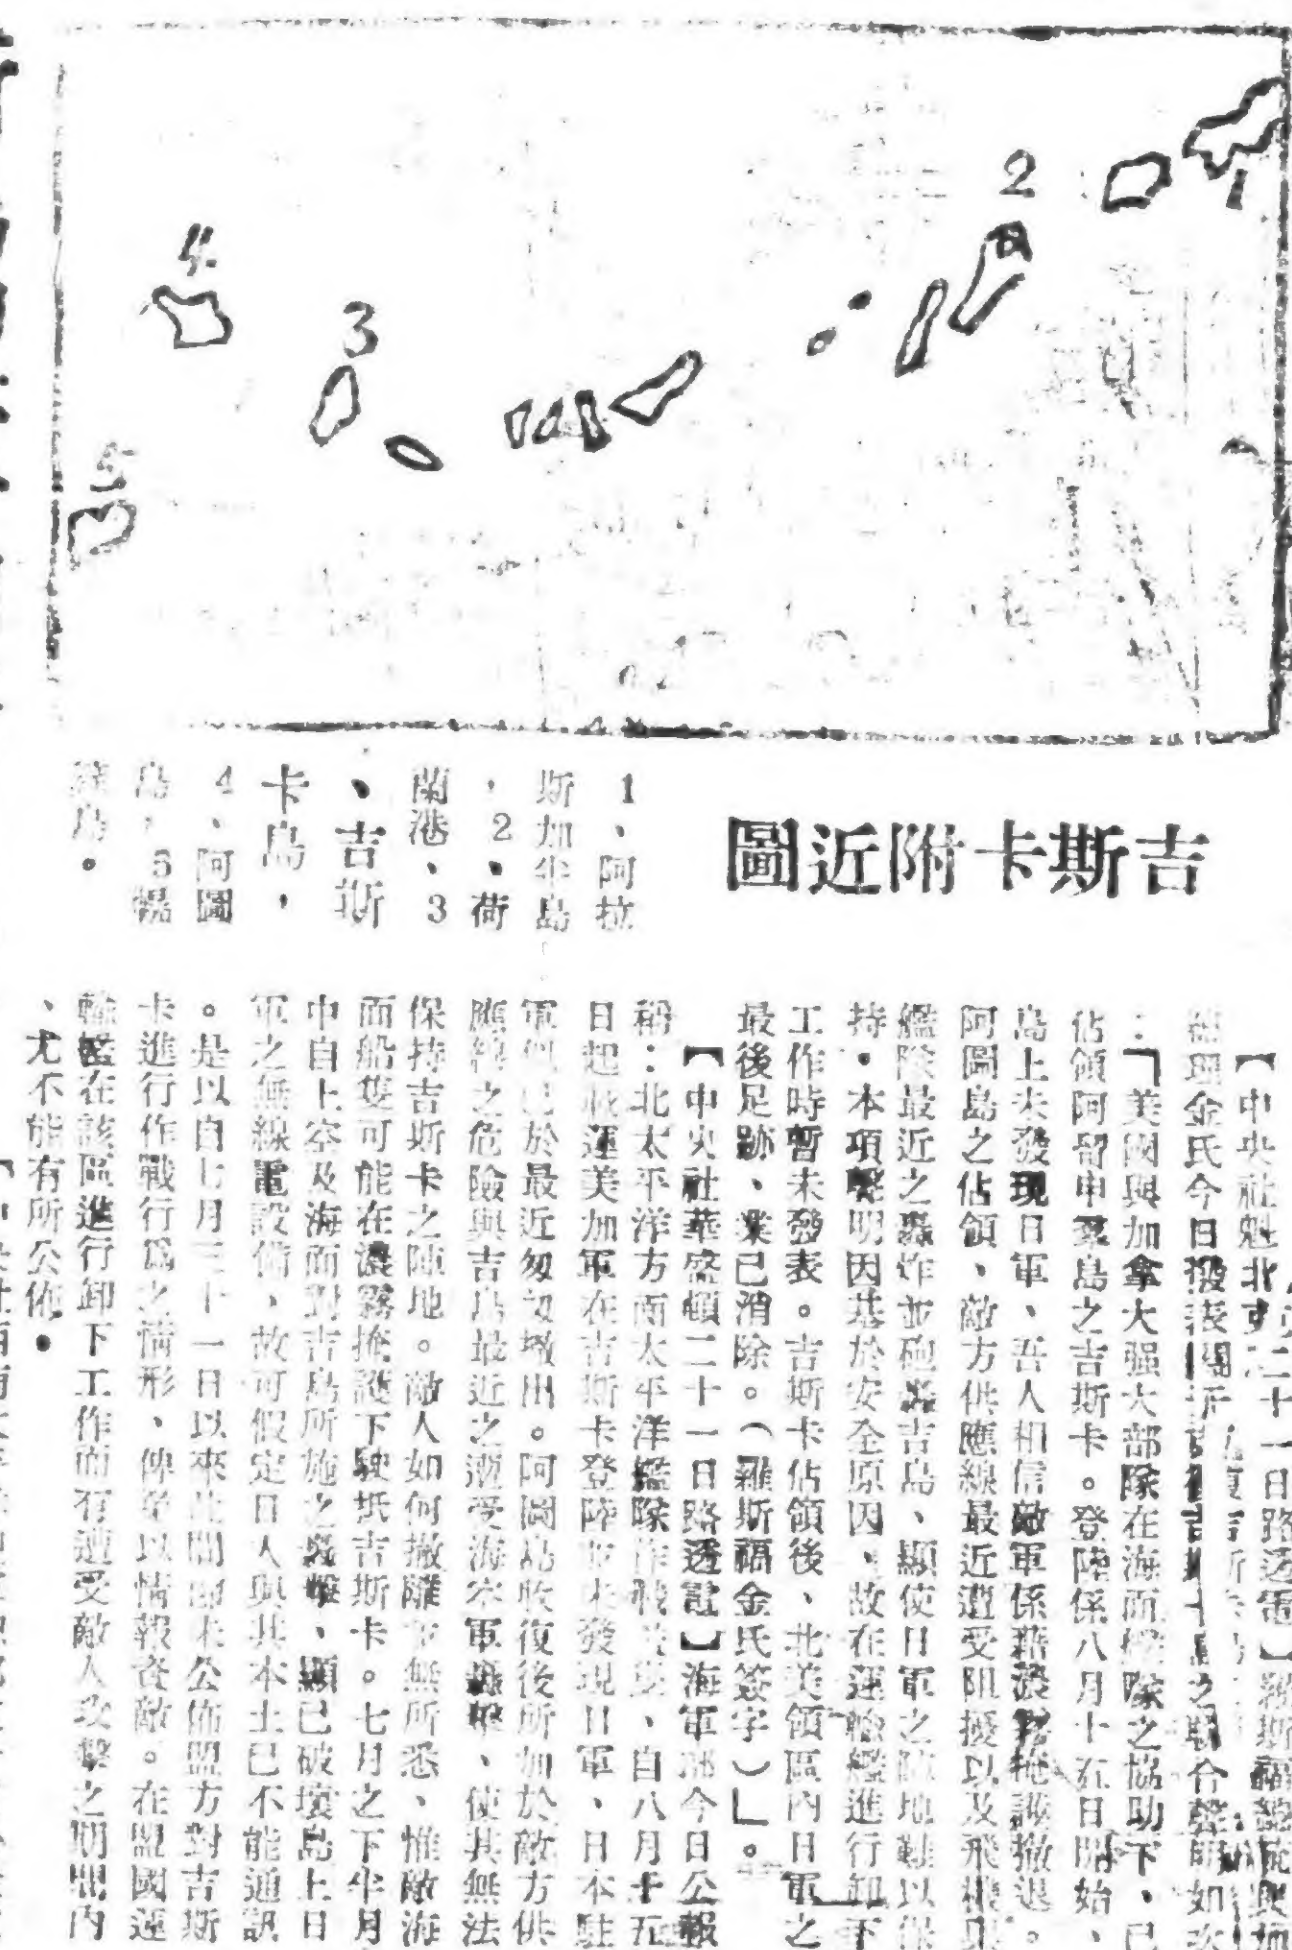 2
4
3
5
吉斯卡附近圖
1、阿拉
斯加半島
，2、荷
蘭港、3
、吉斯
卡島，
4、阿圖
島，5幌
島。
【中央社魁北克二十一日路透電】羅斯福總統與加
總理金氏今日發表關於之聯合聲明如次
：「美國與加拿大强大部隊在海面艦隊之協助下、已
佔領阿留申羣島之吉斯卡。登陸係八月十五日開始、
島上未發現日軍、吾人相信敵軍係藉濃霧掩護撤退。
阿圖島之佔領、敵方供應線最近遭受阻擾以及飛機與
艦隊最近之轟炸並砲轟吉島、顯使日軍之陣地難以保
持。本項聲明因基於安全原因、故在運輸艦進行卸下
工作時暫未發表。吉斯卡佔領後、北美領區內日軍之
最後足跡、業已消除。（羅斯福金氏簽字）」。
【中央社華盛頓二十一日路透電】海軍部今日公報
稱：北太平洋方面太平洋艦隊作戰、自八月十五
日起載運美加軍在吉斯卡登陸並未發現日軍、日本駐
軍似已於最近匆匆撤出。阿圖島收復後所加於敵方供
應線之危險與吉島最近之遭受海空軍轟擊、使其無法
保持吉斯卡之陣地。敵人如何撤離並無所悉、惟敵海
面船隻可能在濃霧掩護下駛抵吉斯卡。七月之下半月
中自上空及海面對吉島所施之轟擊、顯已破壞島上日
軍之無線電設備、故可假定日人與其本土已不能通訊
。是以自七月三十一日以來此間卽未公佈盟方對吉斯
卡進行作戰行爲之情形、俾免以情報資敵。在盟國運
輸艦在該區進行卸下工作而有遭受敵人攻擊之期間內
、尤不能有所公佈。